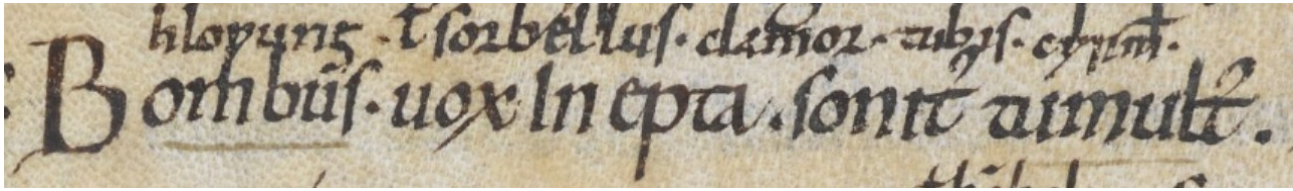 hlopung · ł sorbellus · clamor · tubis · cyrm̄ ·
Bombus · uox In epta · sonit᷒ tumult᷒ .